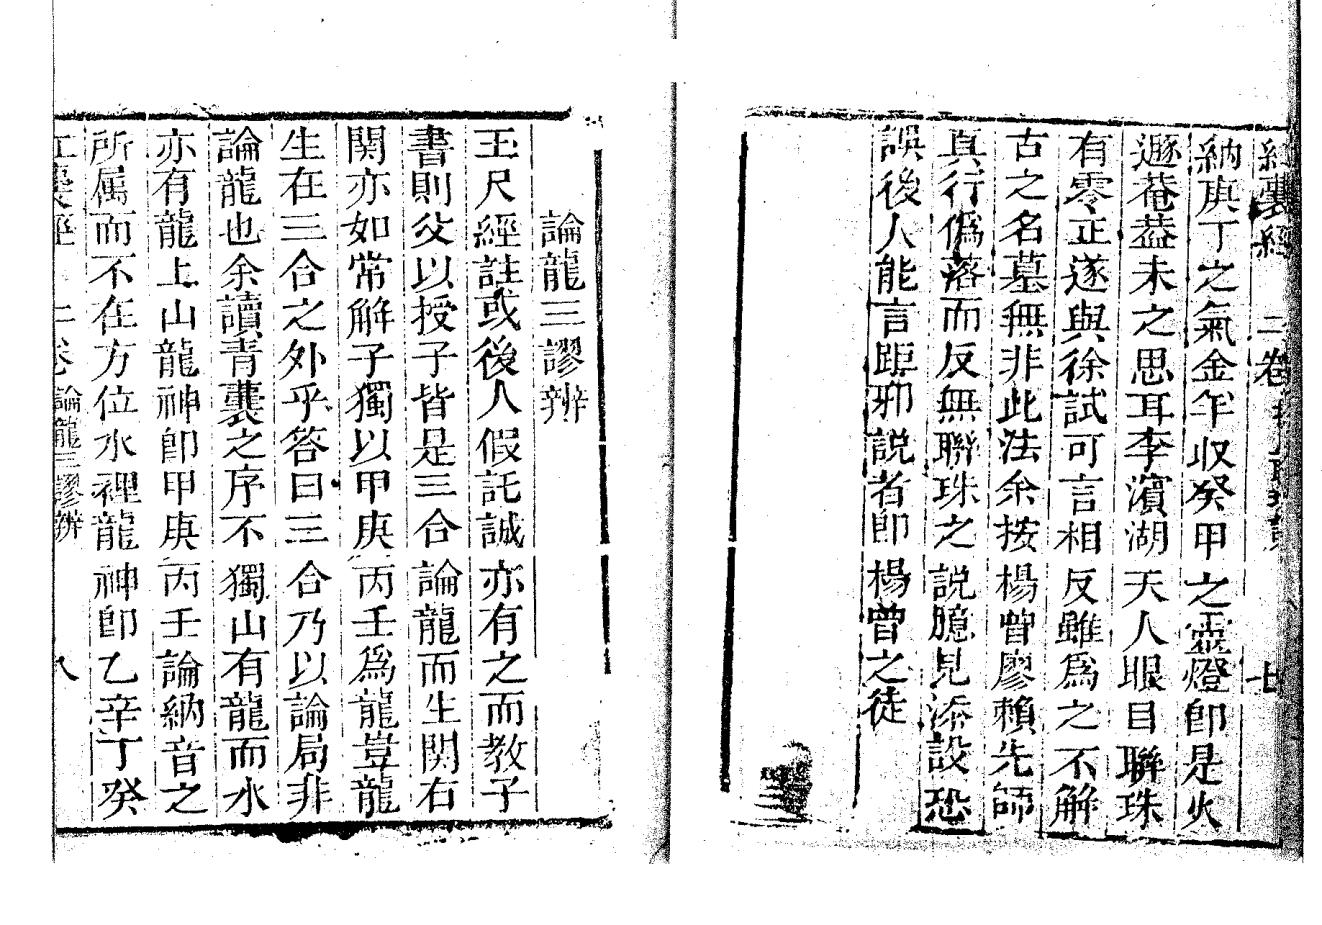 紅囊經 二卷 七
納庚丁之氣金牛收癸甲之靈燈即是火
遯菴葢未之思耳李濱湖天人眼目聯珠
有零正遂與徐試可言相反雖為之不解
古之名墓無非此法余按楊曾廖賴先師
真行僞落而反無聯珠之說臆見添設恐
誤後人能言距邪說者即楊曾之徒
論龍三謬辨
玉尺經註或後人假託誠亦有之而教子
書則父以授子皆是三合論龍而生関右
関亦如常解子獨以甲庚丙壬為龍豈龍
生在三合之外乎答曰三合乃以論局非
論龍也余讀青囊之序不獨山有龍而水
亦有龍上山龍神卽甲庚丙壬論納音之
所属而不在方位水裡龍神卽乙辛丁癸
紅囊經 二卷 論龍三謬辨 八